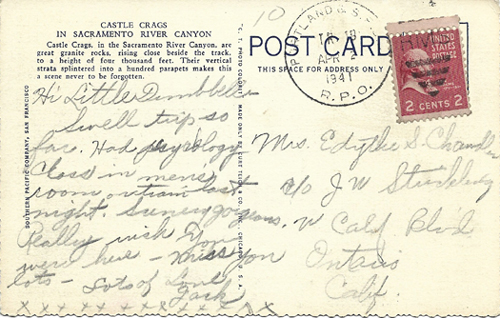 CASTLE CRAGS
IN SACRAMENTO RIVER CANYON
Castle Crags, in the Sacramento River Canyon, are
great granite rocks, rising close beside the track,
to a height of four thousand feet. Their vertical
strata splintered into a hundred parapets makes this
a scene never to be forgotten.
Hi Little Dumbbell
Swell trip so
far. Had psychology
Class in men's
room on train last
night. Scenery gorgeous.
Really wish you
were here - Miss you
lots - Lots of Love
Jack
x x x x x x x x x x x
SOUTHERN PACIFIC COMPANY, SAN FRANCISCO
10
POST CARD
THIS SPACE FOR ADDRESS ONLY
PORTLAND &
APR 2
1941
R.P.O.
UNITED STATES
POSTAGE
2 CENTS 2
Mrs. Edythe S. Chandler
c/o J W
W Calif Blvd
Ontario
Calif.